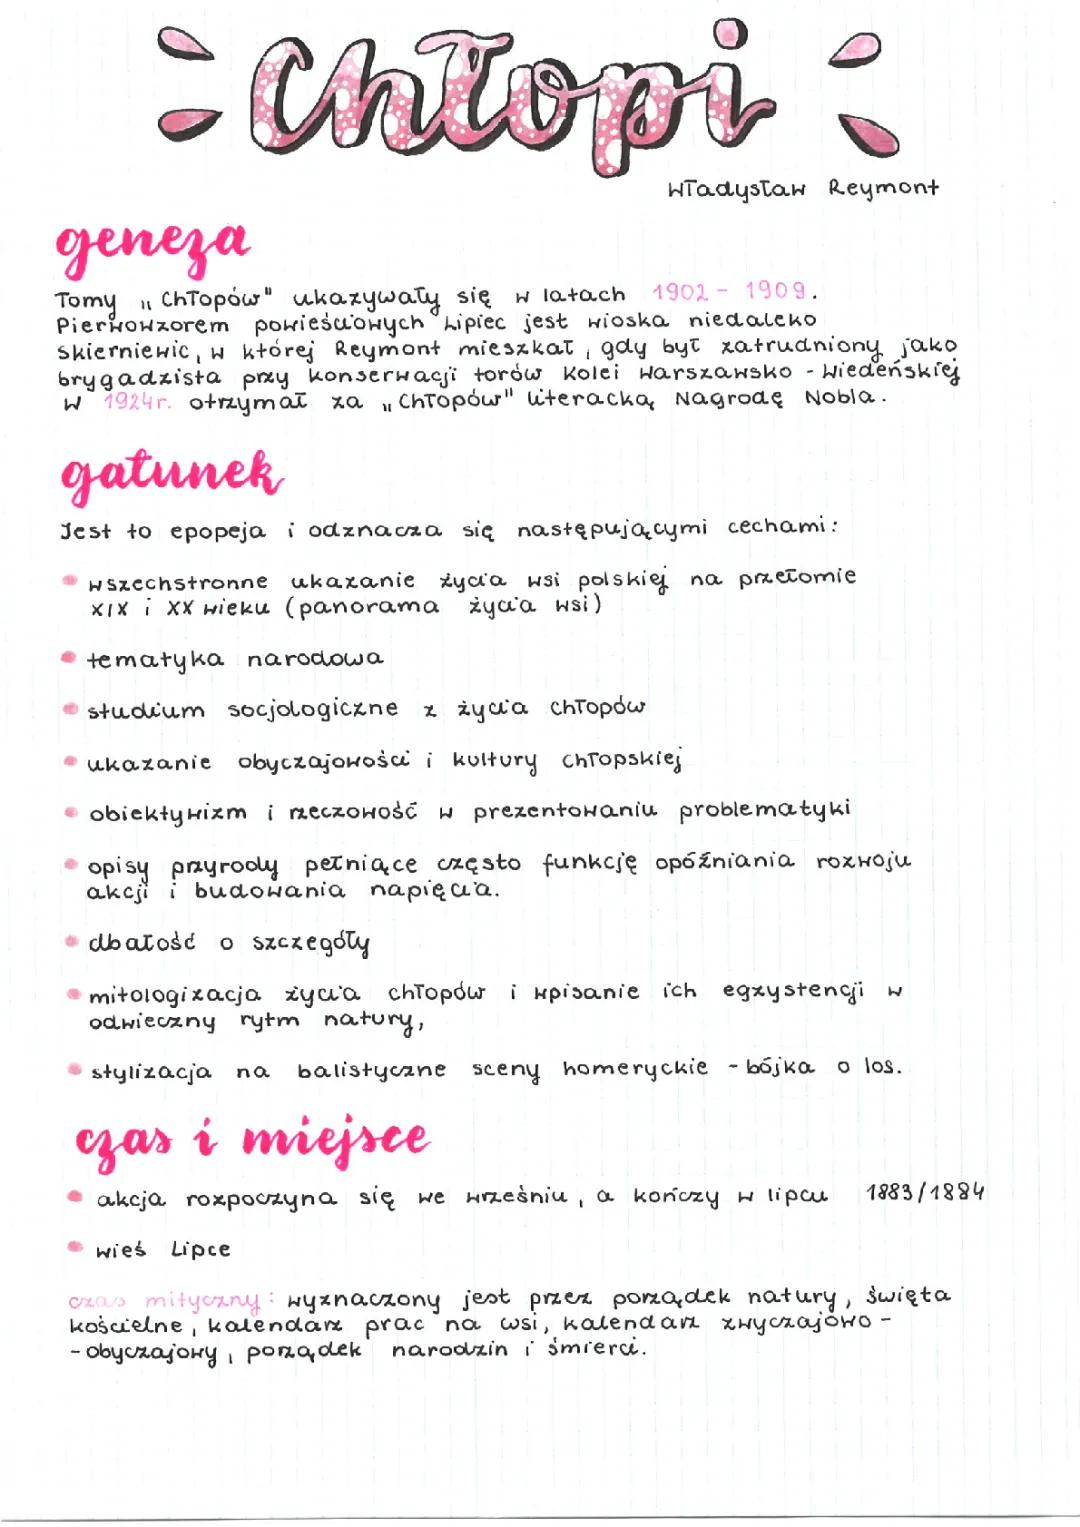 Chłopi
Władysław Reymont
geneza
Tomy „Chłopów" ukazywały się w latach 1902 - 1909.
Pierwowzorem powieściowych Lipiec jest wioska niedaleko
Skierniewic, w której Reymont mieszkał, gdy był zatrudniony jako
brygadzista przy konserwacji torów Kolei Warszawsko - Wiedeńskiej
W 1924r. otrzymał za „Chłopów" literacką Nagrodę Nobla.
gatunek
Jest to epopeja i odznacza się następującymi cechami:
wszechstronne ukazanie życia wsi polskiej na przełomie
XIX i XX wieku (panorama życia wsi)
tematyka narodowa
studium socjologiczne z życia chłopów
ukazanie obyczajowości i kultury chłopskiej
obiektywizm i rzeczowość w prezentowaniu problematyki
opisy przyrody pełniące często funkcję opóźniania rozwoju
akcji i budowania napięcia.
dbałość o szczegóły
mitologizacja życia chłopów i wpisanie ich egzystencji w
odwieczny rytm natury,
stylizacja na balistyczne sceny homeryckie - bójka o los.
czas i miejsce
akcja rozpoczyna się we wrześniu, a kończy w lipcu 1883/1884
wieś Lipce
czas mityczny: wyznaczony jest przez porządek natury, święta
kościelne, kalendarz prac na wsi, kalendarz zwyczajowo -
- obyczajowy, porządek narodzin i śmierci.